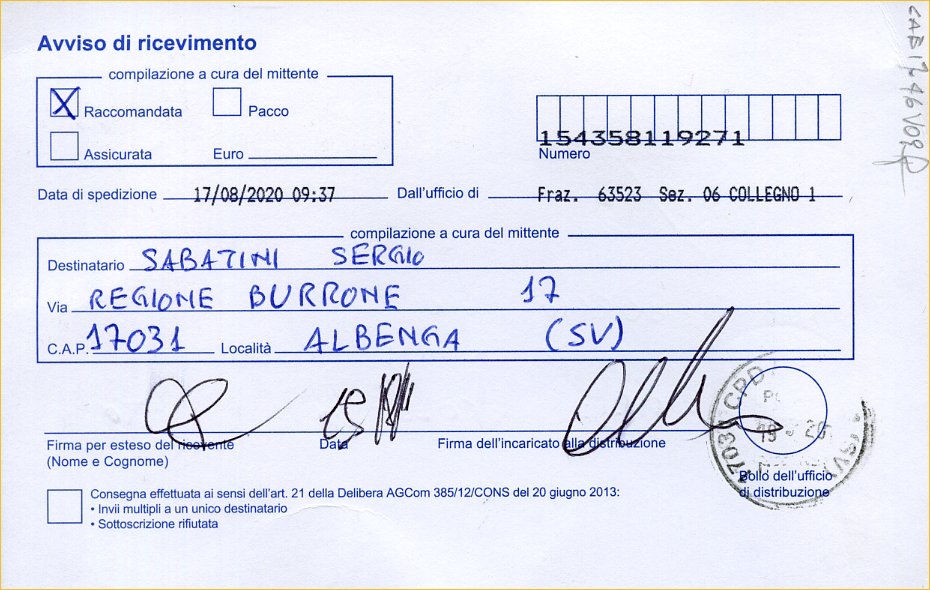 Avviso di ricevimento
compilazione a cura del mittente
X Raccomandata Pacco
Assicurata Euro
154358119271
Numero
Data di spedizione 17/08/2020 09:37 Dall'ufficio di Fraz. 63523 Sez. 06 COLLEGNO 1
compilazione a cura del mittente
Destinatario SABATINI SERGIO
Via REGIONE BURRONE 17
C.A.P. 17031 Località ALBENGA (SV)
Firma per esteso del ricevente
(Nome e Cognome)
Data
Firma dell'incaricato alla distribuzione
Bollo dell'ufficio
di distribuzione
17031 CPD
Consegna effettuata ai sensi dell'art. 21 della Delibera AGCom 385/12/CONS del 20 giugno 2013:
• Invii multipli a un unico destinatario
• Sottoscrizione rifiutata